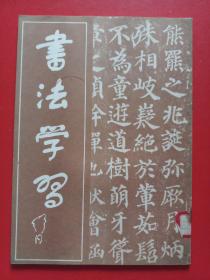 書法学習
熊羆之兆誕弥厥月炳
殊相岐嶷絶於葷茹髫
不為童遊道樹萌牙聳